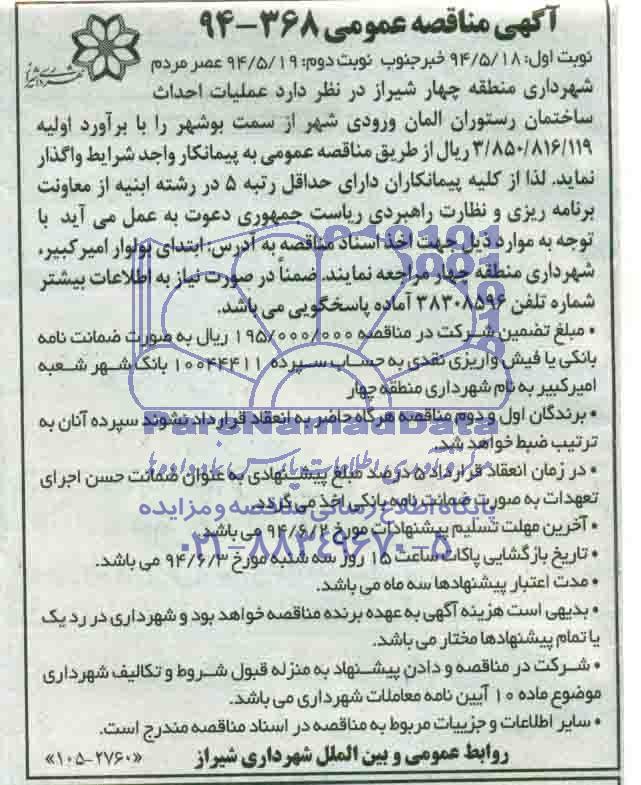 آگهی مناقصه عمومی ۳۶۸-۹۴
نوبت اول: ۹۴/۵/۱۸ خبرجنوب نوبت دوم: ۹۴/۵/۱۹ عصر مردم
شهرداری شیراز
شهرداری منطقه چهار شیراز در نظر دارد عملیات احداث
ساختمان رستوران المان ورودی شهر از سمت بوشهر را با برآورد اولیه
۳/۸۵۰/۸۱۶/۱۱۹ ریال از طریق مناقصه عمومی به پیمانکار واجد شرایط واگذار
نماید. لذا از کلیه پیمانکاران دارای حداقل رتبه ۵ در رشته ابنیه از معاونت
برنامه ریزی و نظارت راهبردی ریاست جمهوری دعوت به عمل می آید با
توجه به موارد ذیل جهت اخذ اسناد مناقصه به آدرس: ابتدای بولوار امیرکبیر،
شهرداری منطقه چهار مراجعه نمایند. ضمناً در صورت نیاز به اطلاعات بیشتر
شماره تلفن ۳۸۳۰۸۵۹۶ آماده پاسخگویی می باشد.
• مبلغ تضمین شرکت در مناقصه ۱۹۵/۰۰۰/۰۰۰ ریال به صورت ضمانت نامه
بانکی یا فیش واریزی نقدی به حساب سپرده ۱۰۰۴۴۴۱۱ بانک شهر شعبه
امیرکبیر به نام شهرداری منطقه چهار
• برندگان اول و دوم مناقصه هرگاه حاضر به انعقاد قرارداد نشوند سپرده آنان به
ترتیب ضبط خواهد شد.
ParsNamadData
• در زمان انعقاد قرارداد ۵ درصد مبلغ پیشنهادی به عنوان ضمانت حسن اجرای
تعهدات به صورت ضمانت نامه بانکی اخذ می گردد.
پایگاه اطلاع رسانی مناقصه و مزایده
• آخرین مهلت تسلیم پیشنهادات مورخ ۹۴/۶/۲ می باشد.
۰۲۱-۸۸۳۴۹۶۷۰-۵
• تاریخ بازگشایی پاکات ساعت ۱۵ روز سه شنبه مورخ ۹۴/۶/۳ می باشد.
• مدت اعتبار پیشنهادها سه ماه می باشد.
• بدیهی است هزینه آگهی به عهده برنده مناقصه خواهد بود و شهرداری در رد یک
یا تمام پیشنهادها مختار می باشد.
• شرکت در مناقصه و دادن پیشنهاد به منزله قبول شروط و تکالیف شهرداری
موضوع ماده ۱۰ آیین نامه معاملات شهرداری می باشد.
• سایر اطلاعات و جزییات مربوط به مناقصه در اسناد مناقصه مندرج است.
روابط عمومی و بین الملل شهرداری شیراز «۱۰۵-۲۷۶۰»